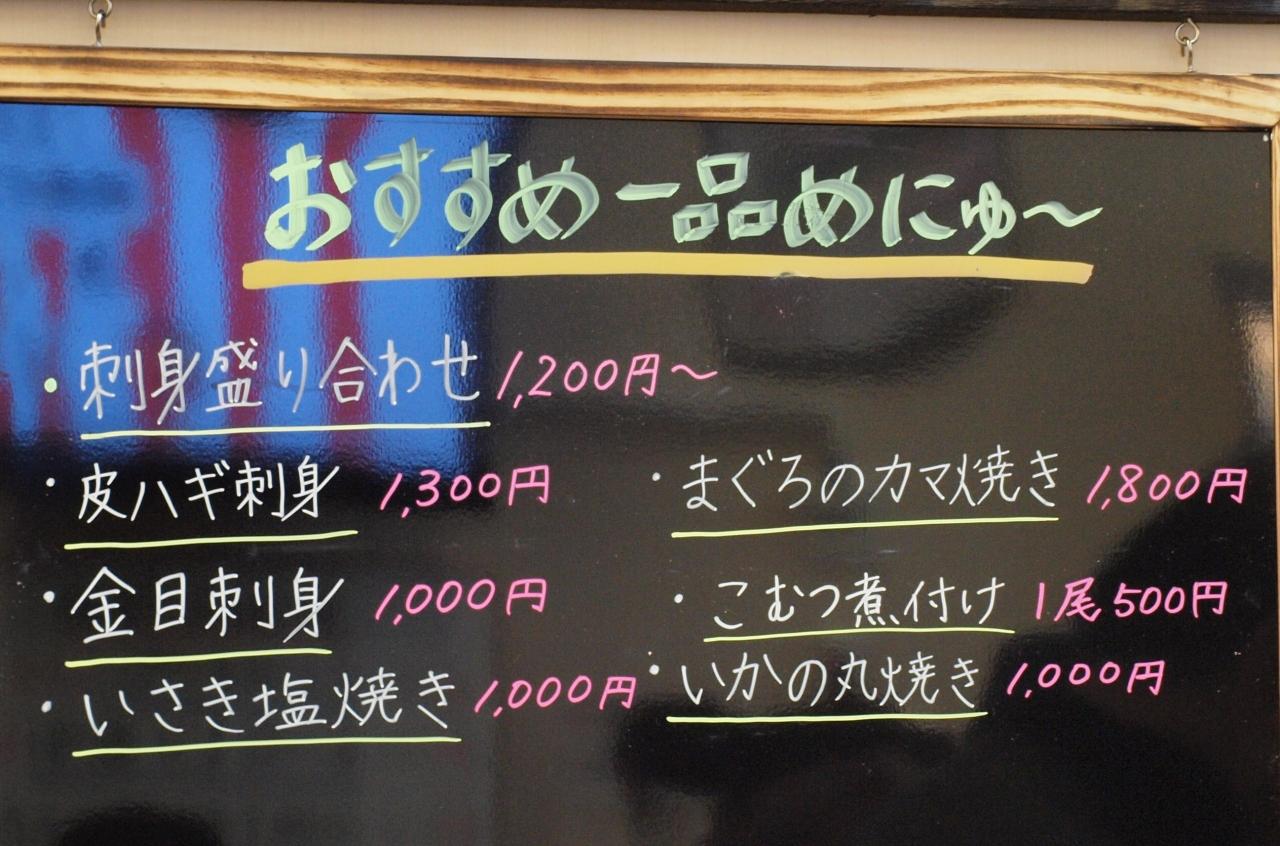 おすすめ一品めにゅ〜
・刺身盛り合わせ 1,200円〜
・皮ハギ刺身 1,300円
・金目刺身 1,000円
・いさき塩焼き 1,000円
・まぐろのカマ焼き 1,800円
・こむつ煮付け 1尾500円
・いかの丸焼き 1,000円